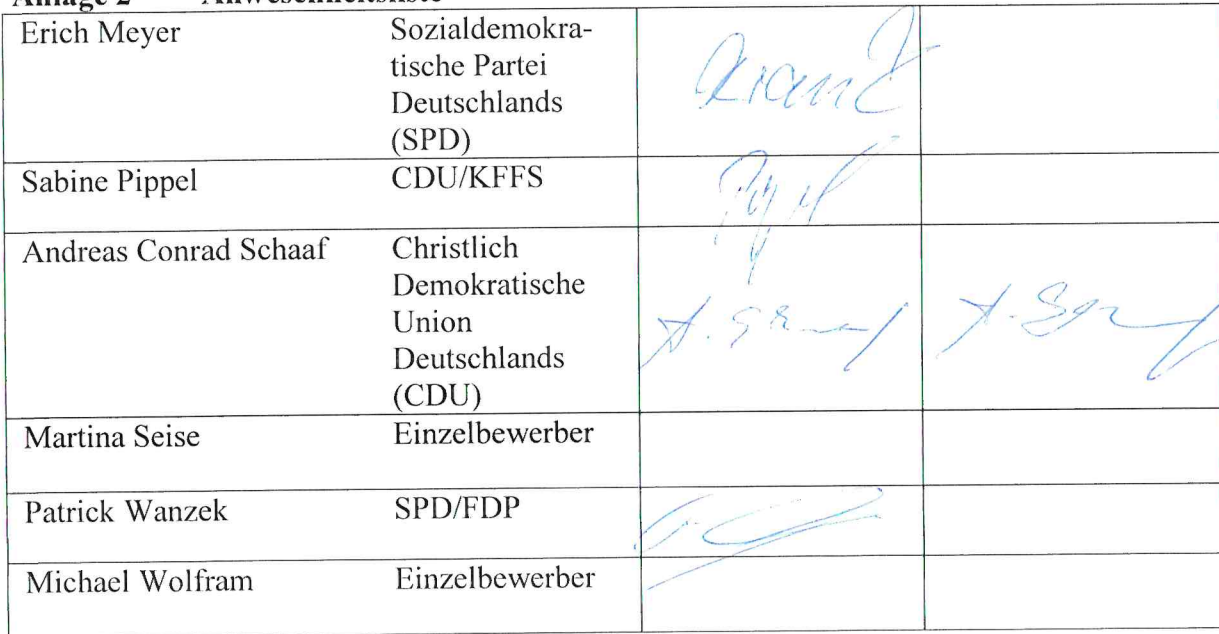 Anlage 2 Anwesenheitsliste
Erich Meyer Sozialdemokra-
tische Partei
Deutschlands
(SPD)
Sabine Pippel CDU/KFFS
Andreas Conrad Schaaf Christlich
Demokratische
Union
Deutschlands
(CDU)
Martina Seise Einzelbewerber
Patrick Wanzek SPD/FDP
Michael Wolfram Einzelbewerber